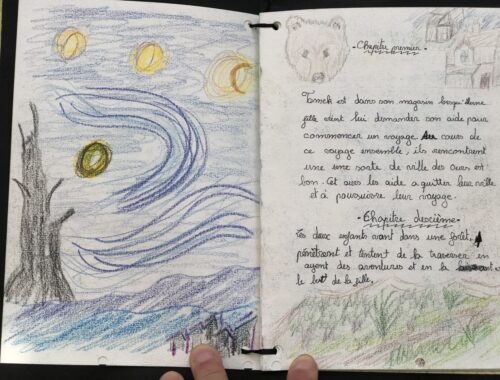 - Chapitre premier -
Tomek est dans son magasin lorsqu'une
fille vient lui demander son aide pour
commencer un voyage. Au cours de
ce voyage ensemble, ils rencontrent
une une sorte de ville des ours est
bon. Cet ours les aide a quitter leur ville
et à poursuivre leur voyage.
- Chapitre deuxième -
Les deux enfants vont dans une forêt,
pénètrent et tentent de la traverser en
ayant des aventures et en la
le but de la fille.